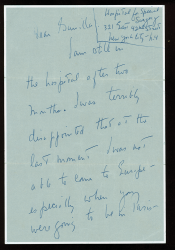 Hospital for Special
Surgery
321 East 42nd Street
New York City - N.Y.
Dear
I am still in
the hospital after two
months. I was terribly
disappointed that at the
last moment I was not
able to come to Europe -
especially when you
were going to be in